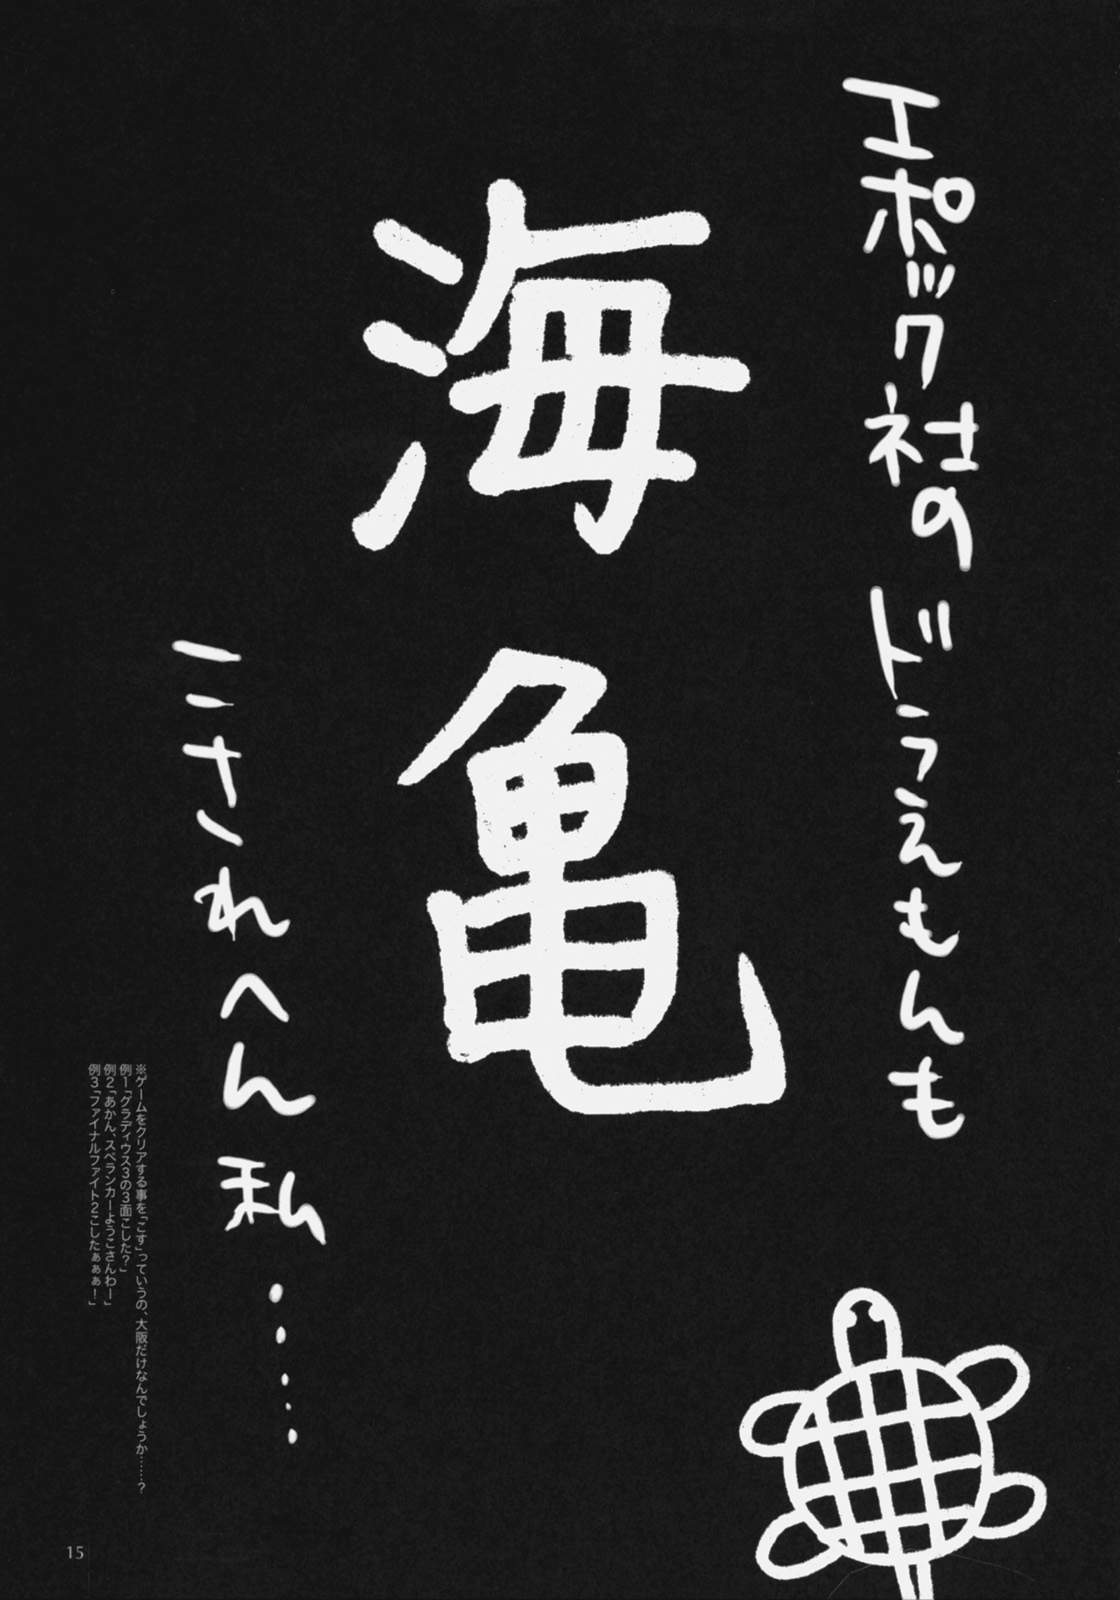 エポック社のドラえもんも
海亀
こされへん私……
※ゲームをクリアする事を「こす」っていうの、大阪だけなんでしょうか……?
例1「グラディウス3の3面こした?」
例2「あかん、スペランカーようこさんわー」
例3「ファイナルファイト2こしたぁぁぁ!」
15